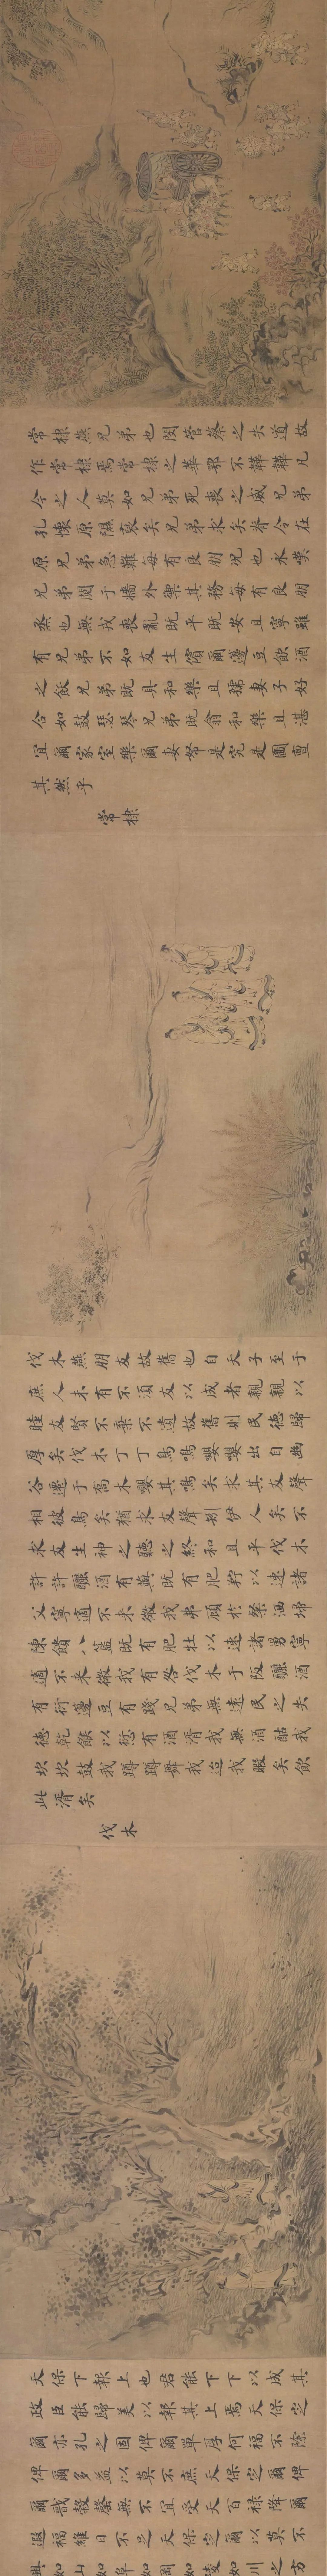 常棣燕兄弟也閔管蔡之失道故
作常棣焉常棣之華鄂不韡韡凡
今之人莫如兄弟死喪之威兄弟
孔懷原隰裒矣兄弟求矣脊令在
原兄弟急難每有良朋況也永嘆
兄弟鬩于墻外禦其務每有良朋
烝也無戎喪亂既平既安且寧雖
有兄弟不如友生儐爾籩豆飲酒
之飫兄弟既具和樂且孺妻子好
合如鼓瑟琴兄弟既翕和樂且湛
宜爾家室樂爾妻帑是究是圖亶
其然乎
常棣
伐木燕朋友故舊也自天子至于
庶人未有不須友以成者親親以
睦友賢不棄不遺故舊則民德歸
厚矣伐木丁丁鳥鳴嚶嚶出自幽
谷遷于喬木嚶其鳴矣求其友聲
相彼鳥矣猶求友聲矧伊人矣不
求友生神之聽之終和且平伐木
許許釃酒有藇既有肥羜以速諸
父寧適不來微我弗顧於粲洒埽
陳饋八簋既有肥牡以速諸舅寧
適不來微我有咎伐木于阪釃酒
有衍籩豆有踐兄弟無遠民之失
德乾餱以愆有酒湑我無酒酤我
坎坎鼓我蹲蹲舞我迨我暇矣飲
此湑矣
伐木
天保下報上也君能下下以成其
政臣能歸美以報其上焉天保定
爾亦孔之固俾爾單厚何福不除
俾爾多益以莫不庶天保定爾俾
爾戩穀罄無不宜受天百祿降爾
遐福維日不足天保定爾以莫不
興如山如阜如岡如陵如川之方